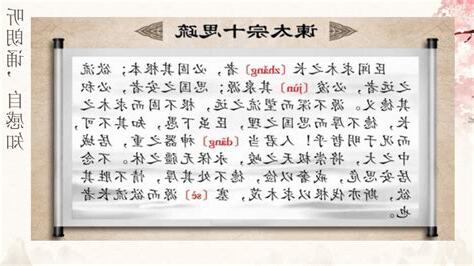 谏太宗十思疏
听朗诵，自感知
臣闻求木之长〔zhǎng〕者，必固其根本；欲流
之远者，必浚〔jùn〕其泉源；思国之安者，必积
其德义。源不深而望流之远，根不固而求木之
长，德不厚而思国之理，臣虽下愚，知其不可，
而况于明哲乎！人君当〔dāng〕神器之重，居域
中之大，将崇极天之峻，永保无疆之休。不念
居安思危，戒奢以俭，德不处其厚，情不胜其
欲，斯亦伐根以求木茂，塞〔sè〕源而欲流长者
也。